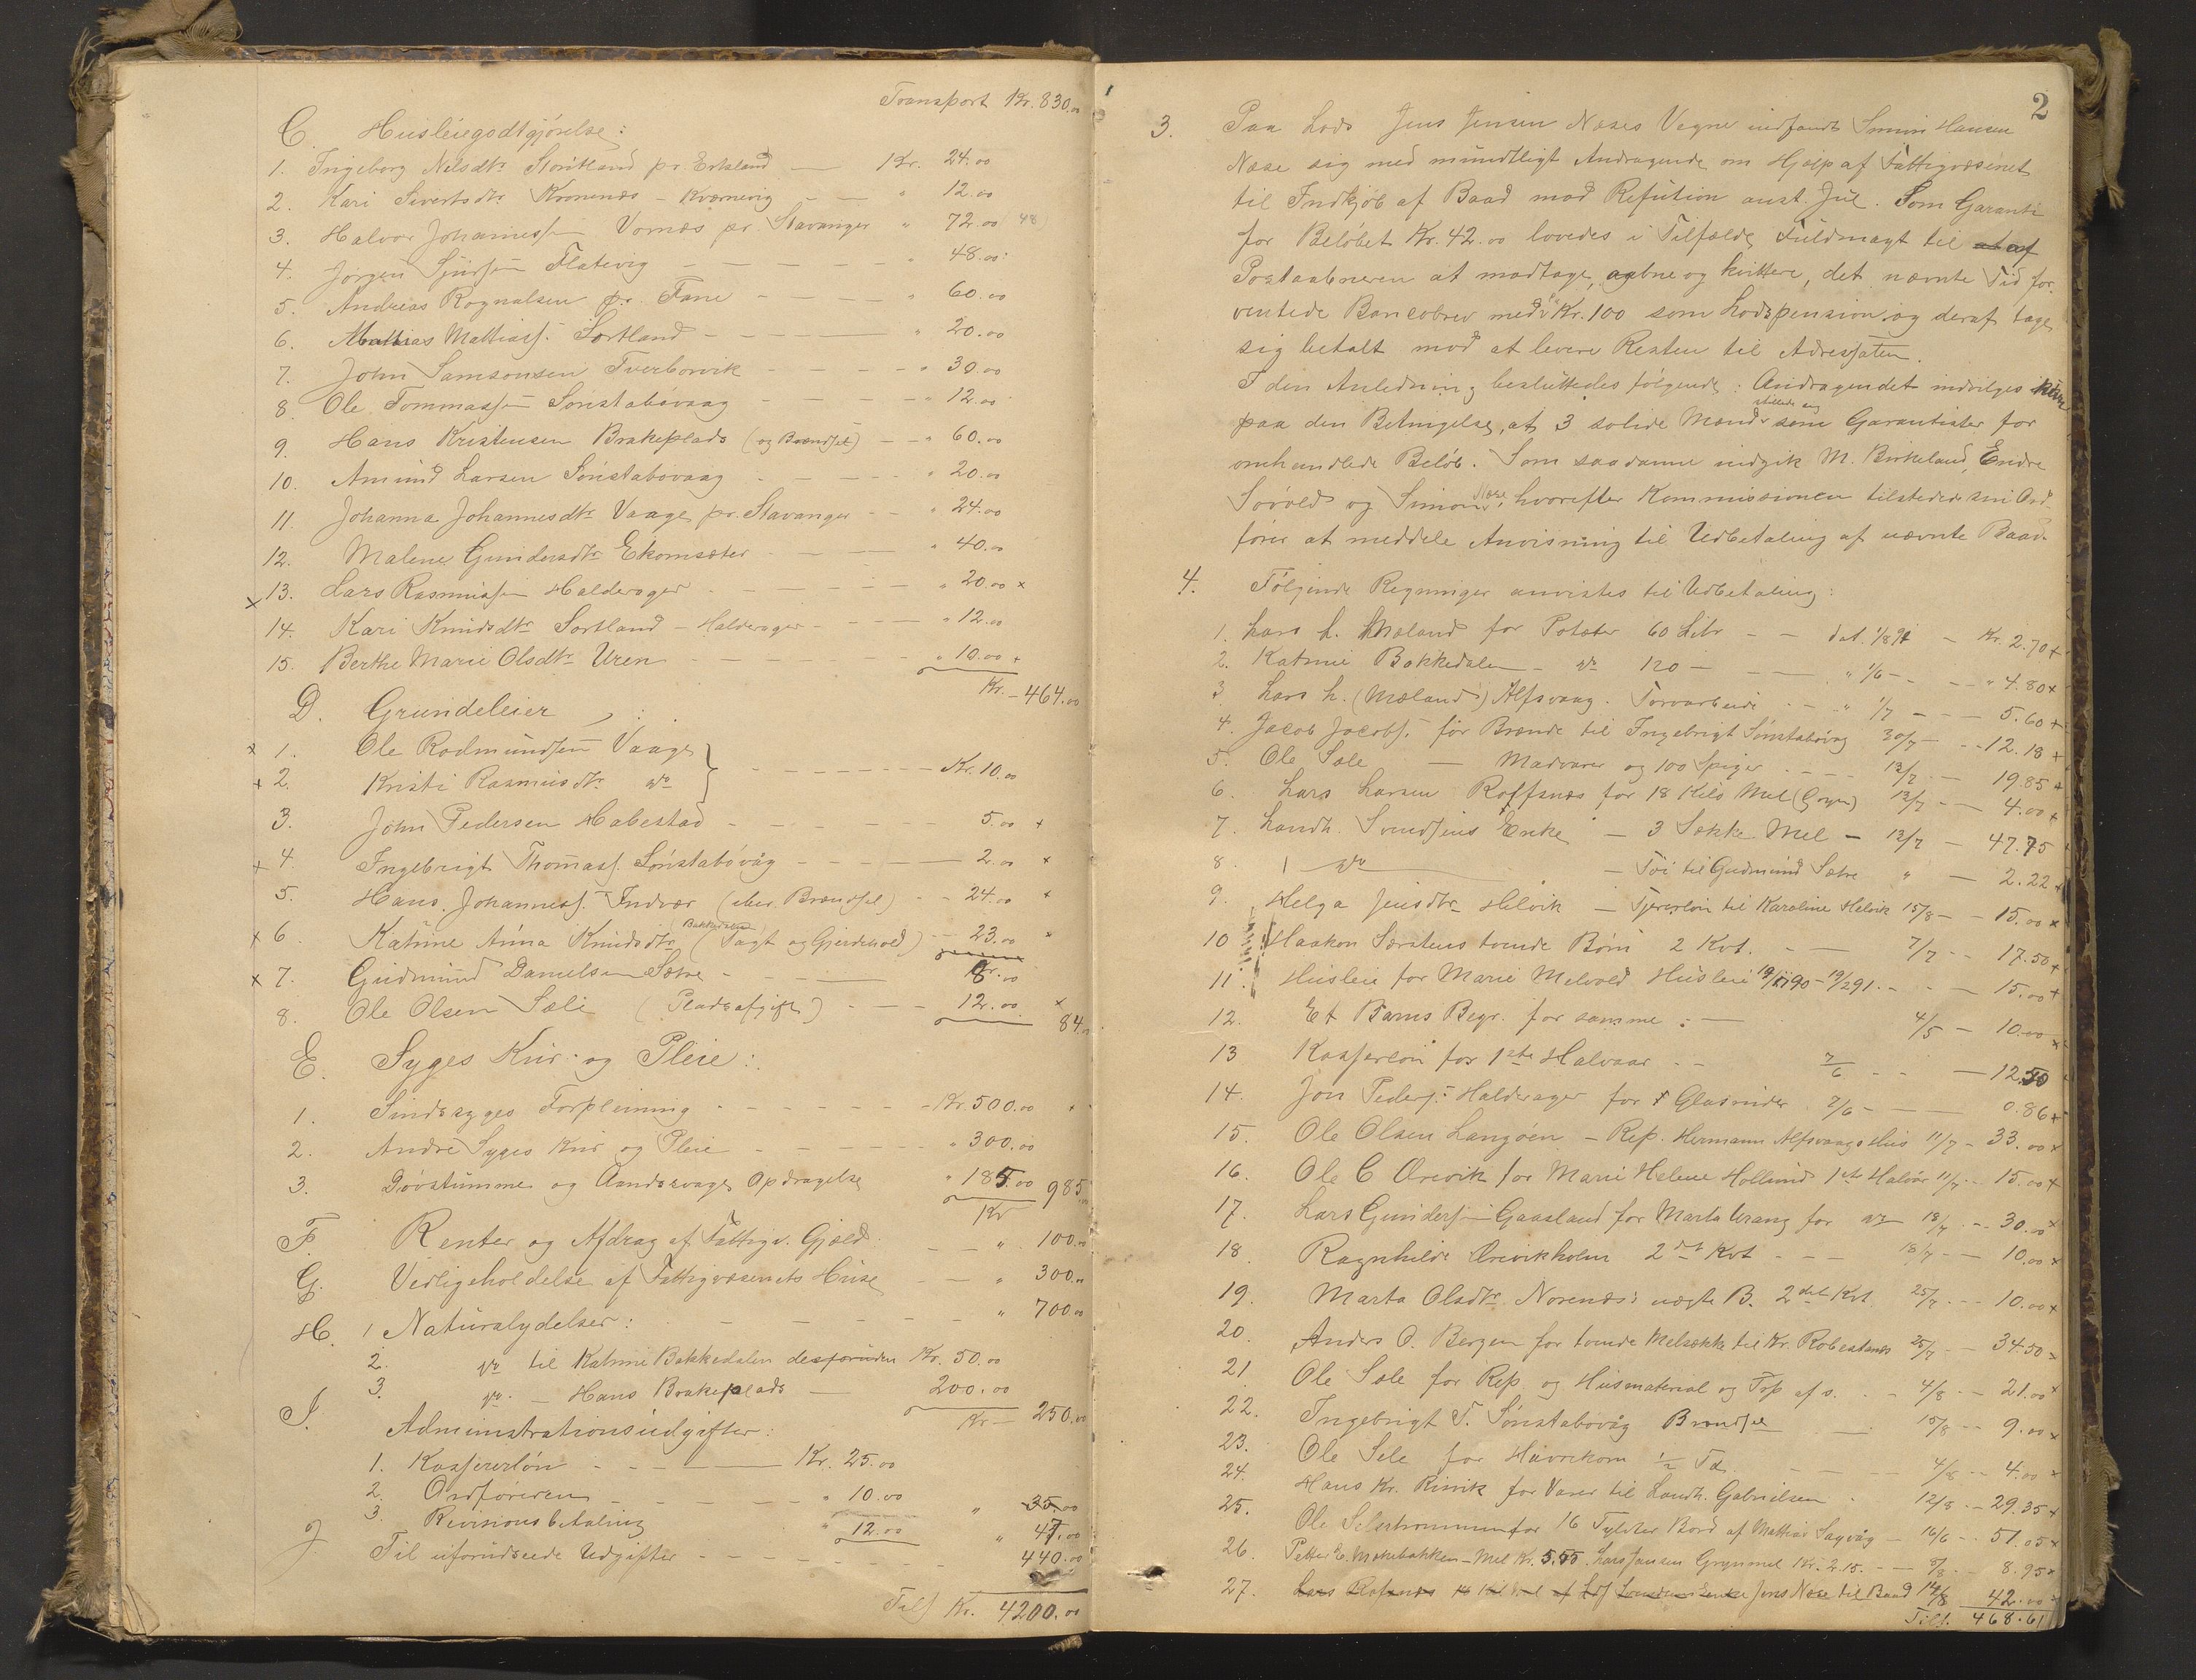 Transport Kr. 830.00
C. Husleiegodtgjörelse:
1. Ingeborg Nilsdtr. Stontland pr. Eskeland — Kr. 24.00
2. Kari Sivertsdtr. Kronenæs - Kværnevig — " 12.00
3. Halvor Johannessen Vornæs pr. Stavanger " 72.00 48
4. Jörgen Sjursen Flatevig - - - " 48.00
5. Andreas Rognalsen pr. Fane - - - " 60.00
6. Mathias Mathiass. Sortland - - - " 20.00
7. John Samsonsen Tverborvik - - - " 30.00
8. Ole Tommassen Sönstabövaag - - - " 12.00
9. Hans Kristensen Brakeplads (og Brændsel) - - " 60.00
10. Amund Larsen Sönstabovaag - - - " 20.00
11. Johanna Johannesdtr. Vaage pr. Stavanger - - " 24.00
12. Malene Gundersdtr. Ekornsæter - - - " 40.00
x 13. Lars Rasmussen Halderager - - - " 20.00 x
14. Kari Knudsdtr. Sortland - Halderager - - - " 12.00
15. Berthe Marie Olsdtr. Uren - - - " 10.00 +
Kr. - 464.00
D. Grundeleier:
x 1. Ole Rodmundsen Vaage
x 2. Kristi Rasmusdtr. do - - - Kr. 10.00
3. John Pedersen Habestad - - - 5.00 +
x 4. Ingebrigt Thomass. Sönstabövåg - - - 2.00 x
5. Hans Johanness. Indvær (iber. Brændsel) - - 24.00 x
x 6. Katrine Anna Knudsdtr. Bakkedalen (Tagt og Gjerdehold) - - 23.00 x
x 7. Gudmund Danielsen Sætre - - - 8.00
8. Ole Olsen Sæle (Pladsafgift) - - - 12.00 x
84.00
E. Syges Kur og Pleie:
1. Sindssyges Forpleining - - - Kr. 500.00 x
2. Andre Syges Kur og Pleie - - - " 300.00
3. Dövstumme og Aandssvages Opdragelse " 185.00 985.00
Kr
F. Renter og Afdrag af Fattigv. Gjæld - - " 100.00
G. Vedligeholdelse af Fattigvæsenets Huse - - " 300.00
H. 1 Naturalydelser: - - - " 700.00
2. do til Katrine Bakkedalen desforuden Kr. 50.00
3. do. — Hans Brakeplads — 200.00
Kr — 250.00
I. Administrationsudgifter:
1. Kassererlön - - - Kr. 25.00
2. Ordföreren - - - " 10.00 " 35.00
3. Revisionsbetaling " 12.00 " 47.00
J. Til uforudseede Udgifter - - - 440.00
Tils Kr. 4200.00
2
3. Paa Lods Jens Jensen Næses Vegne indfandt Simon Hansen
Næse sig med mundtligt Andragende om Hjælp af Fattigvæsenet
til Indkjöb af Baad mod Refution anst. Jul. Som Garanti
for Belöbet Kr. 42.00 lovedes i Tilfælde Fuldmagt til at af
Postaabneren at modtage, aabne og kvittere, det nævnte Tid for-
ventede Bancobrev med Kr. 100 som Lodspension og deraf tage
sig betalt mod at levere Resten til Adressaten.
I den Anledning besluttedes fölgende: Andragendet indvilges kun
paa den Betingelse, at 3 solide Mænd stillede sig som Garantister for
omhandlede Belöb. Som saadanne indgik M. Birkeland, Endre
Sövold og Simon Næse, hvorefter Kommissionen tilstedede sin Ord-
förer at meddele Anvisning til Udbetaling af nævnte Baad.
4. Fölgende Regninger anvistes til Udbetaling:
1. Lars L. Mæland for Poteter 60 Litr - - dat. 1/8 91 - Kr. 2.70 +
2. Katrine Bakkedalen - do 120 — " 1/6 - - - " 4.80 x
3. Lars L. (Mæland) Alfsvaag. Torvarbeide - - " 1/7 - - - 5.60 +
4. Jacob Jacobs. for Brænde til Ingebrigt Sönstabövåg 30/7 - - 12.18 +
5. Ole Sæle — Madvarer og 100 Spiger - - - 13/7 - - 19.85 +
6. Lars Larsen Roffsnæs for 18 Kilo Mel (Gryn) 13/7 - - 4.00 +
7. Landh. Svendsens Enke — 3 Sække Mel - 13/7 - 47.75
8. 1 do — Töi til Gudmund Sætre " — 2.22 x
9. Helga Jensdtr. Helvik — Tjenerlön til Karoline Helvik 15/8 - - 15.00 x
10 Haakon Særstens tvende Börn 2 Kvt. - — 7/7 - - 17.50 +
11. Husleie for Marie Melvold Husleie 19/11 90 - 19/2 91 - - - 15.00 +
12. Et Barns Begr. for samme: — 4/5 - 10.00 x
13 Kassererlön for 1ste Halvaar - - 7/6 - - — 12.50
14. Jon Peders. Halderager for 5 Glasruder 7/6 - — 0.86 +
15. Ole Olsen Langöen - Rep. Hermann Alfsvaags Hus 11/7 - 33.00 x
16. Ole C Örevik for Marie Helene Hollund 1ste Halvår 11/7 - - 15.00 +
17. Lars Gundersen Gaasland for Marta Urang for do 18/7 - - 30.00 x
18. Ragnhilde Örevikholm 2det Kvt - - - 18/7 - - 10.00 x
19. Marta Olsdtr. Norenæs: uægte B. 2det Kvt. 25/7 - - - 10.00 +
20. Anders O. Bergen for tvende Melsække til Kr. Robestanæs 25/7 - - 34.50 x
21. Ole Sæle for Rep. og Husmaterial og Trsp af s. - - 4/8 - - 21.00 x
22. Ingebrigt T. Sönstabovåg Brændsel — 15/8 - - 9.00 x
23. Ole Sele for Havrekorn 1/2 Td. - - - 4/8 - - 4.00 x
24. Hans Kr. Rimik for Varer til Landh. Gabrielsen - 12/8 - - 29.35 +
25. Ole Selstrommen for 16 Tylvter Bord af Mathias Sagvåg - 16/6 - - 51.05 x
26. Petter E. Mokebakken - Mel Kr. 5.50. Lars Jansen Grynmel Kr. 2.15. - - 5/8 - - 8.95 x
27. Jens Næse til Baad 14/8 42.00
Tils. 468.61